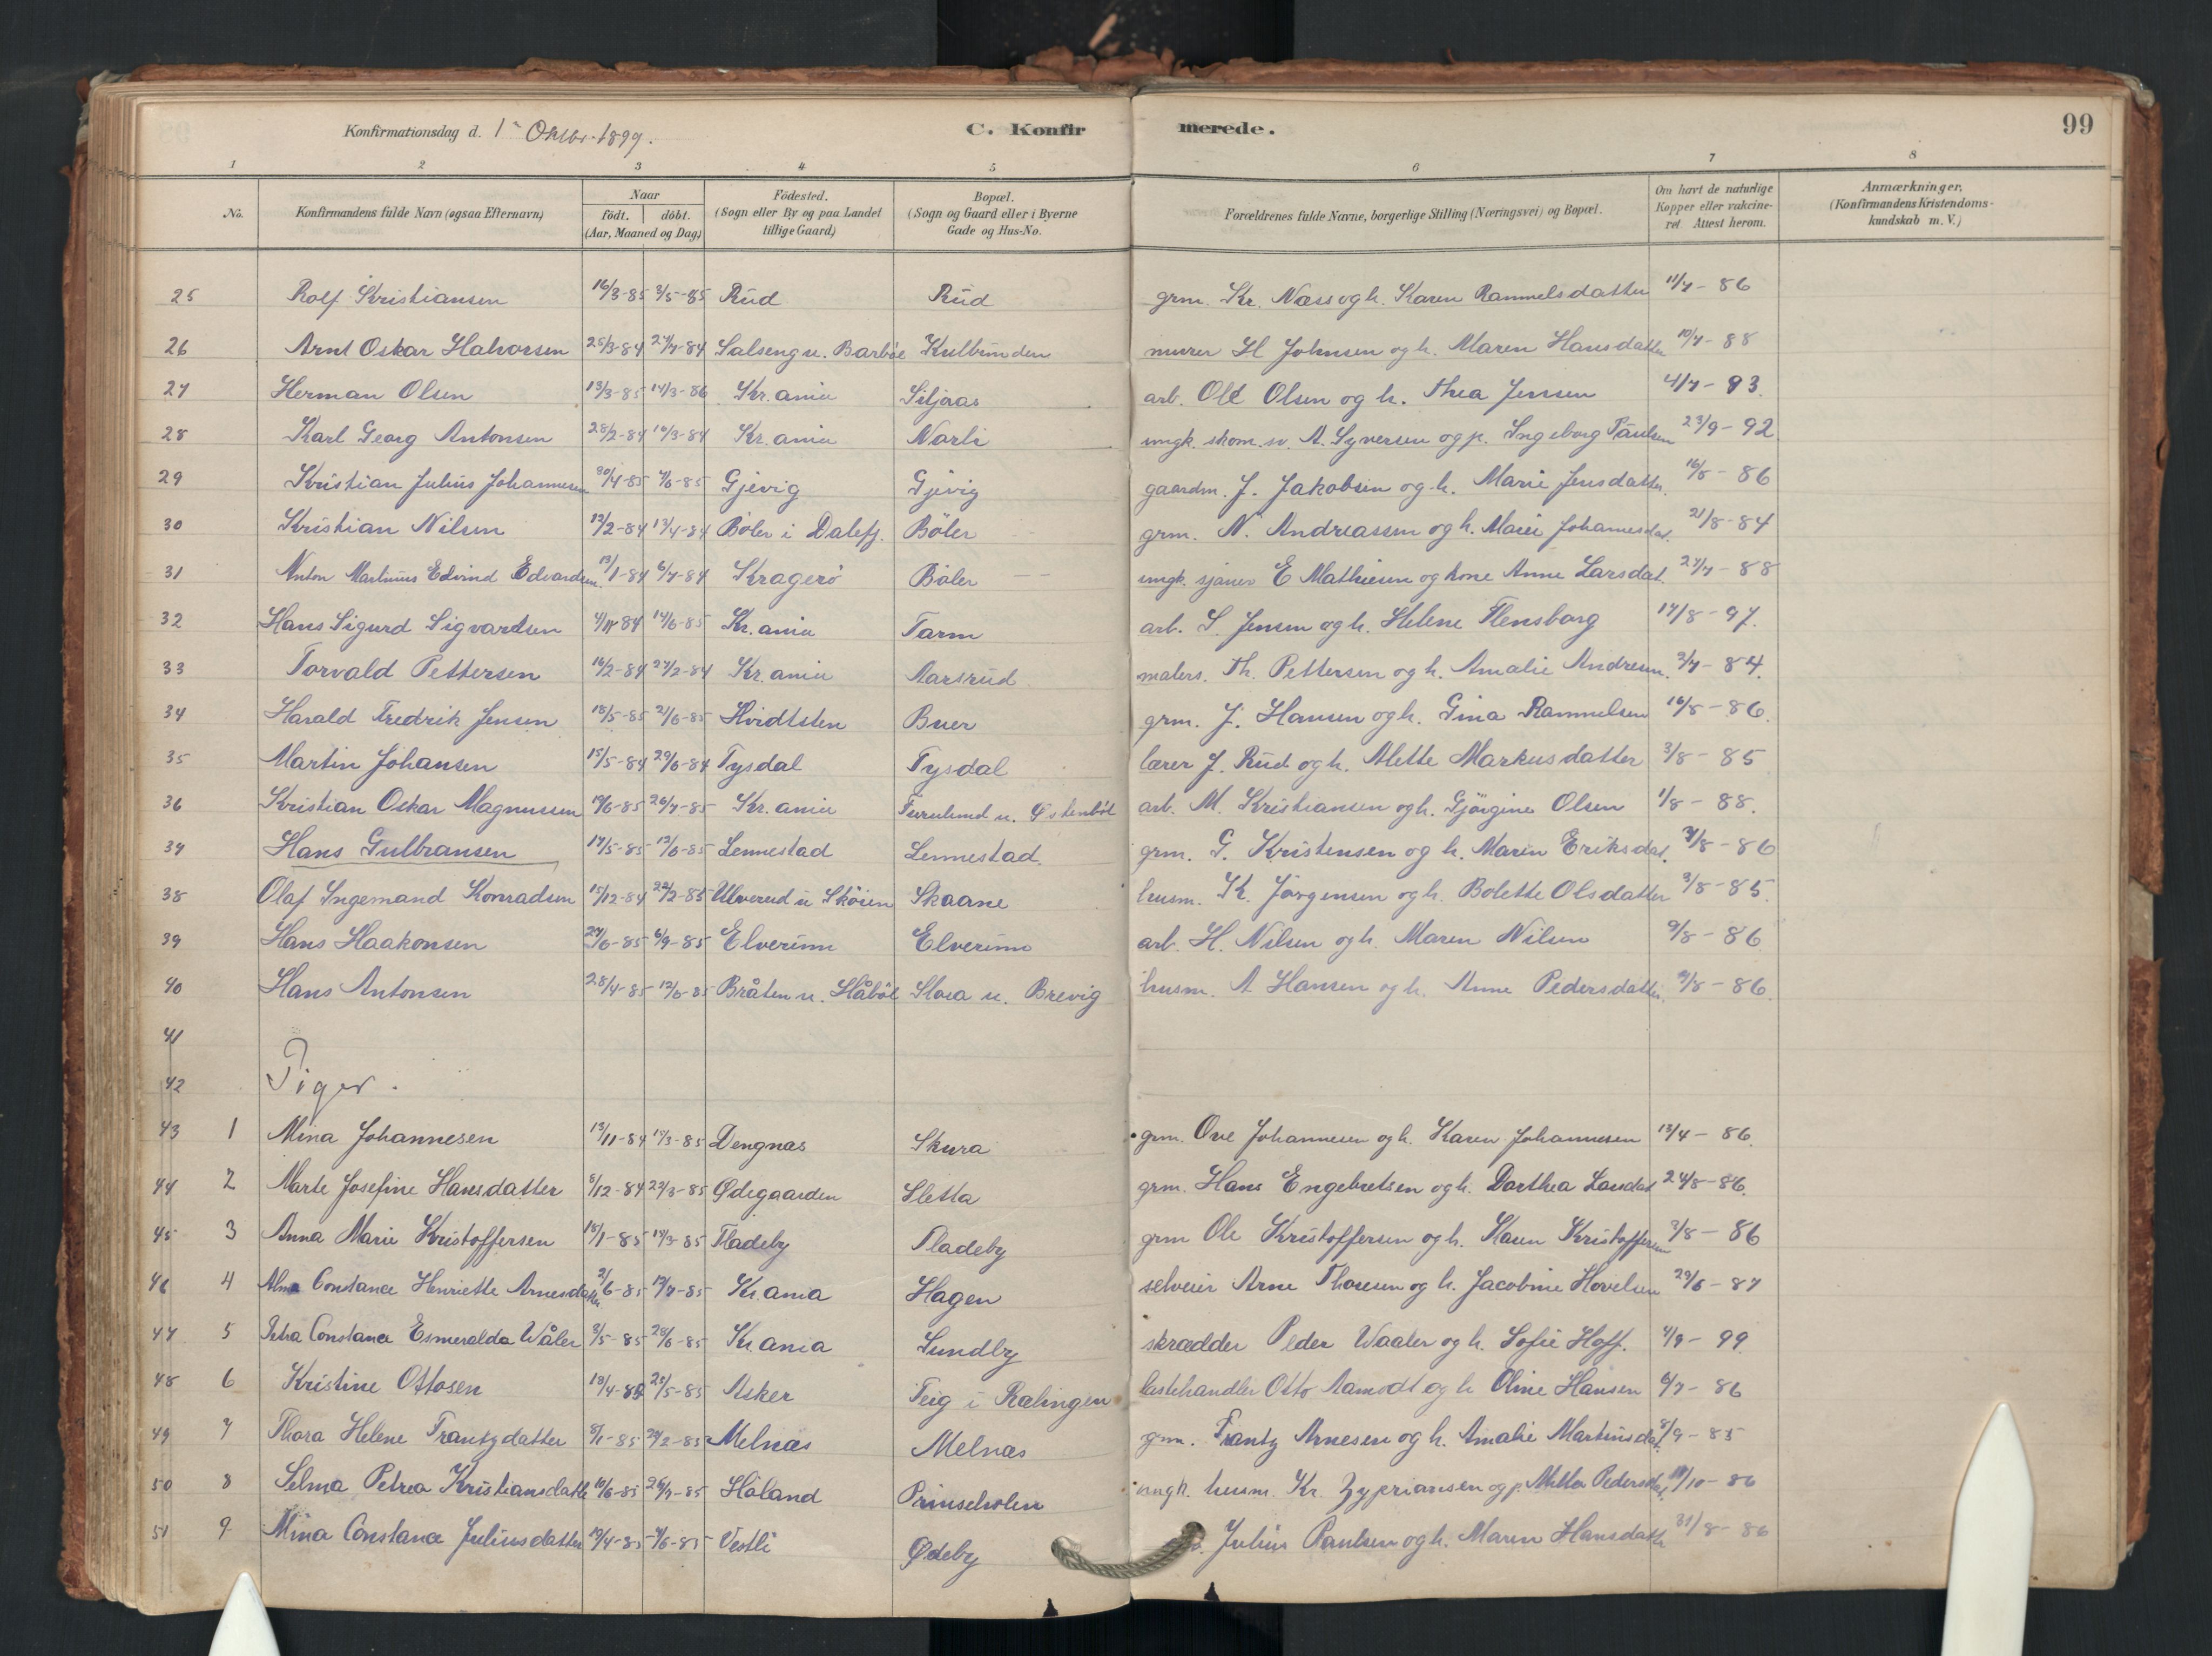 Konfirmationsdag d. 1 Oktbr. 1899.
C. Konfirmerede.
99
1 2 3 4 5 6 7 8
No.
Konfirmandens fulde Navn (ogsaa Efternavn)
Naar født. døbt. (Aar, Maaned og Dag)
Födested. (Sogn eller By og paa Landet tillige Gaard)
Bopæl. (Sogn og Gaard eller i Byerne Gade og Hus-No.
Forældrenes fulde Navne, borgerlige Stilling (Næringsvei) og Bopæl.
Om havt de naturlige Kopper eller vakcineret Attest herom.
Anmærkninger, (Konfirmandens Kristendomskundskab m. V.)
25 Rolf Kristiansen 16/3-85 3/5-85 Rud Rud grm. Kr. Næss og h. Karen Rammelsdatter 11/7-86
26 Arnt Oskar Halvorsen 25/3-84 27/7-84 Salseng u. Barböl Kulbunden murer H Johnsen og h. Maren Hansdatter 10/7-88
27 Herman Olsen 13/3-85 14/3-86 Kr.ania Siljaas arb. Ole Olsen og h. Thea Jensen 4/7-93.
28 Karl Georg Antonsen 28/2-84 16/3-84 Kr.ania Norli ungk. skom.sv. A. Syversen og p. Ingeborg Paulsen 23/9-92
29 Kristian Julius Johannesen 30/4-85 7/6-85 Gjevig Gjevig gaardm. J. Jakobsen og h. Marie Jensdatter. 16/8-86
30 Kristian Nilsen 12/2-84 13/4-84 Böler i Dalefj. Böler grm. N. Andreassen og h. Marie Johannesdat. 21/8-84
31 Anton Martinius Edvind Edvardsen 13/1-84 6/7-84 Kragerö Böler ungk. sjauer E Mathiesen og kone Anne Larsdat. 27/7-88
32 Hans Sigurd Sigvardsen 4/11 84 14/6-85 Kr.ania Tarm arb. S. Jensen og h. Helene Flensborg 17/8-97.
33 Torvald Pettersen 16/2-84 27/2-84 Kr.ania Aarsrud malers. Th. Pettersen og h. Amalie Andresen. 2/7-84.
34 Harald Fredrik Jensen 18/5-85 21/6-85 Hvidtsten Buer grm. J. Hansen og h. Gina Rammelsen 16/8-86.
35 Martin Johansen 15/5-84 29/6-84 Tysdal Tysdal lærer J. Rud og h. Mette Markusdatter 3/8-85
36 Kristian Oskar Magnussen 19/6-85 26/7-85 Kr.ania Furulund u. Østenböl arb. M. Kristiansen og h. Gjörgine Olsen 1/8-88.
37 Hans Gulbransen 17/5-85 12/6-85 Lennestad Lennestad grm. G. Kristensen og h. Maren Eriksdat. 31/8-86
38 Olaf Ingemand Konradsen 15/12-84 22/2-85 Ulverud u Sköien Skaane husm. K. Jörgensen og h. Bolette Olsdatter 2/8-85.
39 Hans Haakonsen 27/6-85 6/9-85 Elverum Elverum arb. H. Nilsen og h. Maren Nilsen 9/8-86
40 Hans Antonsen 28/4-85 12/6-85 Bråten u. Håböl Slora u. Brevig husm. A Hansen og h. Anne Pedersdatter. 9/8-86.
41
42 Piger.
43 1 Mina Johannesen 13/11-84 15/3-85 Dengnæs Skura grm. Ove Johannesen og h. Karen Johannesen 13/4-86.
44 2 Marte Josefine Hansdatter 8/12-84 22/3-85 Ødegaarden Sletta grm. Hans Engebretsen og h. Dorthea Larsdat 24/8-86.
45 3 Anna Marie Kristoffersen 18/1-85 15/3-85 Fladeby Fladeby grm Ole Kristoffersen og h. Karen Kristoffersen 2/8-86
46 4 Alma Constance Henriette Arnesdatter 2/6-85 12/7-85 Kr.ania Hagen selveier Arne Thoresen og h. Jacobine Hovelsen 29/6-87
47 5 Petra Constance Esmeralda Wåler 3/5-85 28/6-85 Kr.ania Sundby skrædder Peder Waaler og h. Sofie Hoff. 4/9-99
48 6 Kristine Ottosen 13/4-85 25/5-85 Asker Teig i Rælingen lastehandler Otto Aamodt og h Oline Hansen 6/7-86
49 7 Thora Helene Frantzdatter 8/1-85 22/2-85 Melnæs Melnæs grm. Frantz Arnesen og h. Amalie Martinsdat. 8/9-85
50 8 Selma Petrea Kristiansdatte 10/6-85 26/7-85 Höland Prinseholen ungk. husm. Kr. Zypriansen og p. Mette Pedersdat. 11/10-86
51 9 Mina Constance Juliusdatter 19/4-85 7/6-85 Vestli Ødeby Julius Paulsen og h. Maren Hansdatte 31/8-86